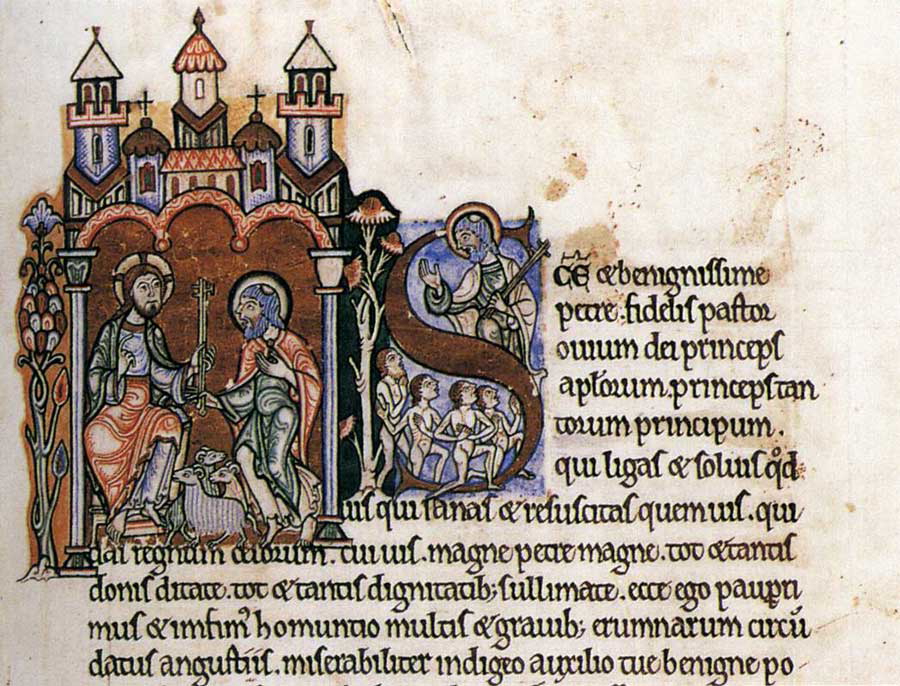 SC̄E & benignissime
petre . fidelis pastor
ouium dei princeps
apl̄orum . princeps tan
torum principum .
qui ligas & soluis qd̄
uis qui sanas & resuscitas quem uis . qui
das regnum celorum . cui uis . magne petre magne . tot & tantis
donis ditate . tot & tantis dignitatib; sullimate . ecce ego paup̱ri
mus & infim' homuntio multis & grauib; erumnarum circū
datus angustiis . miserabiliter indigeo auxilio tue benigne po-